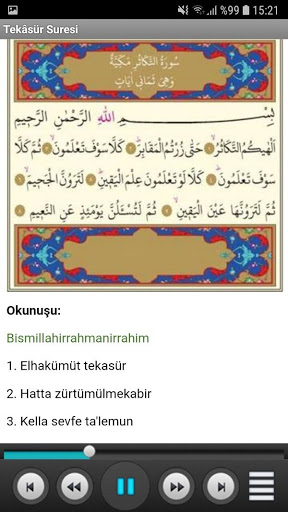 %99 15:21
Tekâsür Suresi
سُورَةُ التَّكَاثُرِ مَكِّيَّةٌ
وَهِىَ ثَمَانِى اٰيَاتٍ
بِسْمِ اللّٰهِ الرَّحْمٰنِ الرَّحِيمِ
اَلْهٰيكُمُ التَّكَاثُرُۙ ﴿١﴾ حَتّٰى زُرْتُمُ الْمَقَابِرَۜ ﴿٢﴾ كَلَّا سَوْفَ تَعْلَمُونَۙ ﴿٣﴾ ثُمَّ كَلَّا
سَوْفَ تَعْلَمُونَۜ ﴿٤﴾ كَلَّا لَوْ تَعْلَمُونَ عِلْمَ الْيَقِينِۜ ﴿٥﴾ لَتَرَوُنَّ الْجَحِيمَۙ ﴿٦﴾
ثُمَّ لَتَرَوُنَّهَا عَيْنَ الْيَقِينِۙ ﴿٧﴾ ثُمَّ لَتُسْـَٔلُنَّ يَوْمَئِذٍ عَنِ النَّعِيمِ ﴿٨﴾
Okunuşu:
Bismillahirrahmanirrahim
1. Elhakümüt tekasür
2. Hatta zürtümülmekabir
3. Kella sevfe ta'lemun